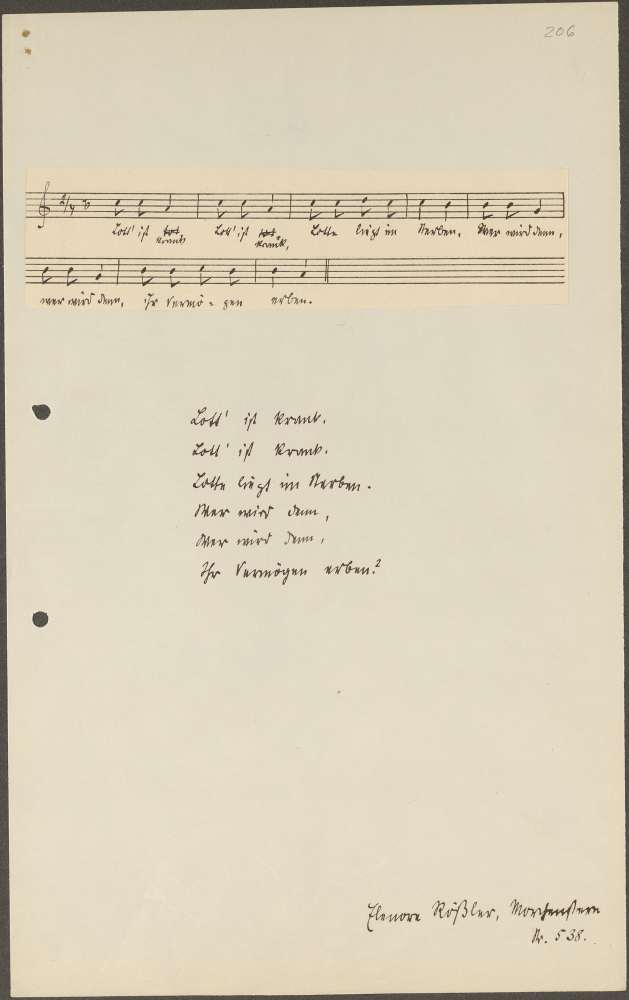 206
2/4
Lott' ist tot krank Lott' ist tot krank, Lotte liegt im Sterben, Wer wird denn,
wer wird denn, ihr Vermö-gen erben.
Lott' ist krank.
Lott' ist krank.
Lotte liegt im Sterben.
Wer wird denn,
Wer wird denn,
Ihr Vermögen erben?
Elenore Rößler, Morchenstern
Nr. 538.